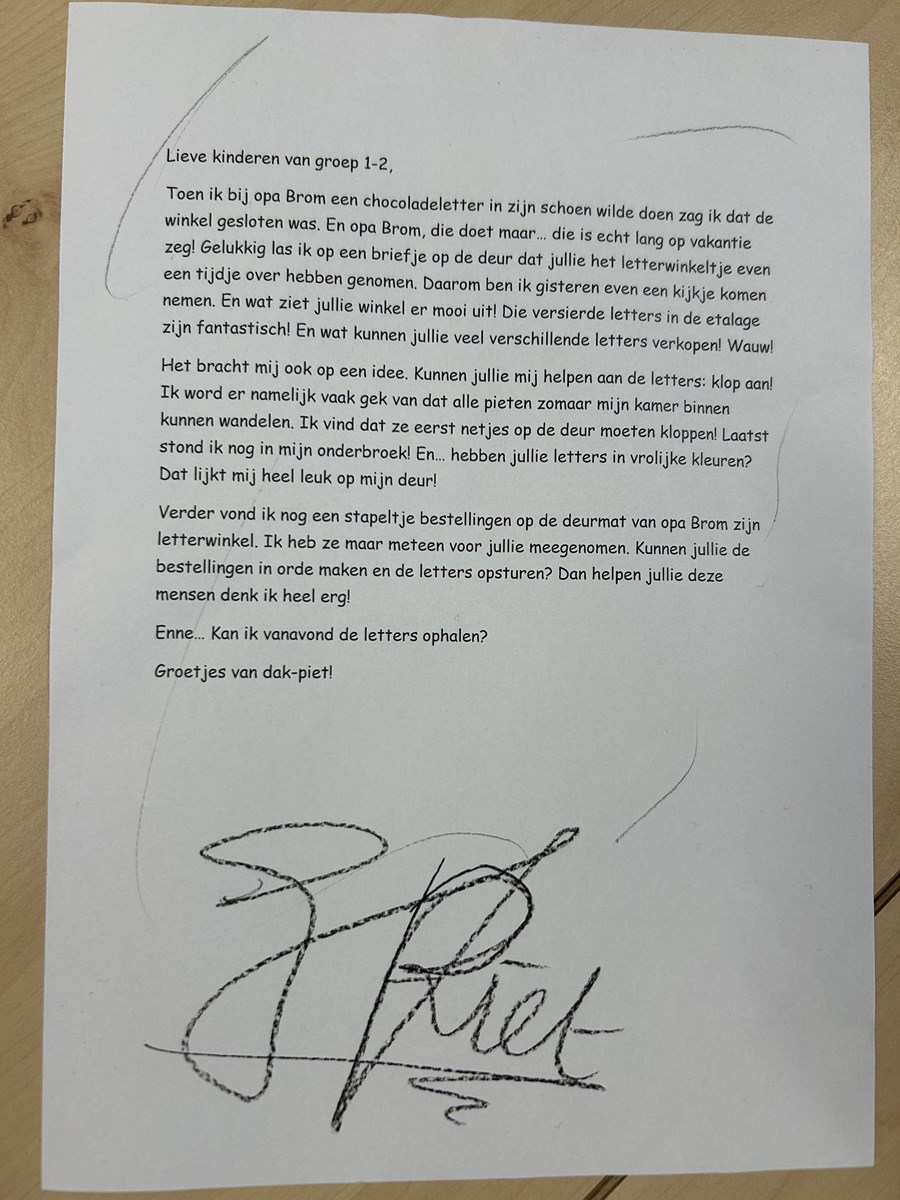 Lieve kinderen van groep 1-2,
Toen ik bij opa Brom een chocoladeletter in zijn schoen wilde doen zag ik dat de
winkel gesloten was. En opa Brom, die doet maar... die is echt lang op vakantie
zeg! Gelukkig las ik op een briefje op de deur dat jullie het letterwinkeltje even
een tijdje over hebben genomen. Daarom ben ik gisteren even een kijkje komen
nemen. En wat ziet jullie winkel er mooi uit! Die versierde letters in de etalage
zijn fantastisch! En wat kunnen jullie veel verschillende letters verkopen! Wauw!
Het bracht mij ook op een idee. Kunnen jullie mij helpen aan de letters: klop aan!
Ik word er namelijk vaak gek van dat alle pieten zomaar mijn kamer binnen
kunnen wandelen. Ik vind dat ze eerst netjes op de deur moeten kloppen! Laatst
stond ik nog in mijn onderbroek! En... hebben jullie letters in vrolijke kleuren?
Dat lijkt mij heel leuk op mijn deur!
Verder vond ik nog een stapeltje bestellingen op de deurmat van opa Brom zijn
letterwinkel. Ik heb ze maar meteen voor jullie meegenomen. Kunnen jullie de
bestellingen in orde maken en de letters opsturen? Dan helpen jullie deze
mensen denk ik heel erg!
Enne... Kan ik vanavond de letters ophalen?
Groetjes van dak-piet!
Piet